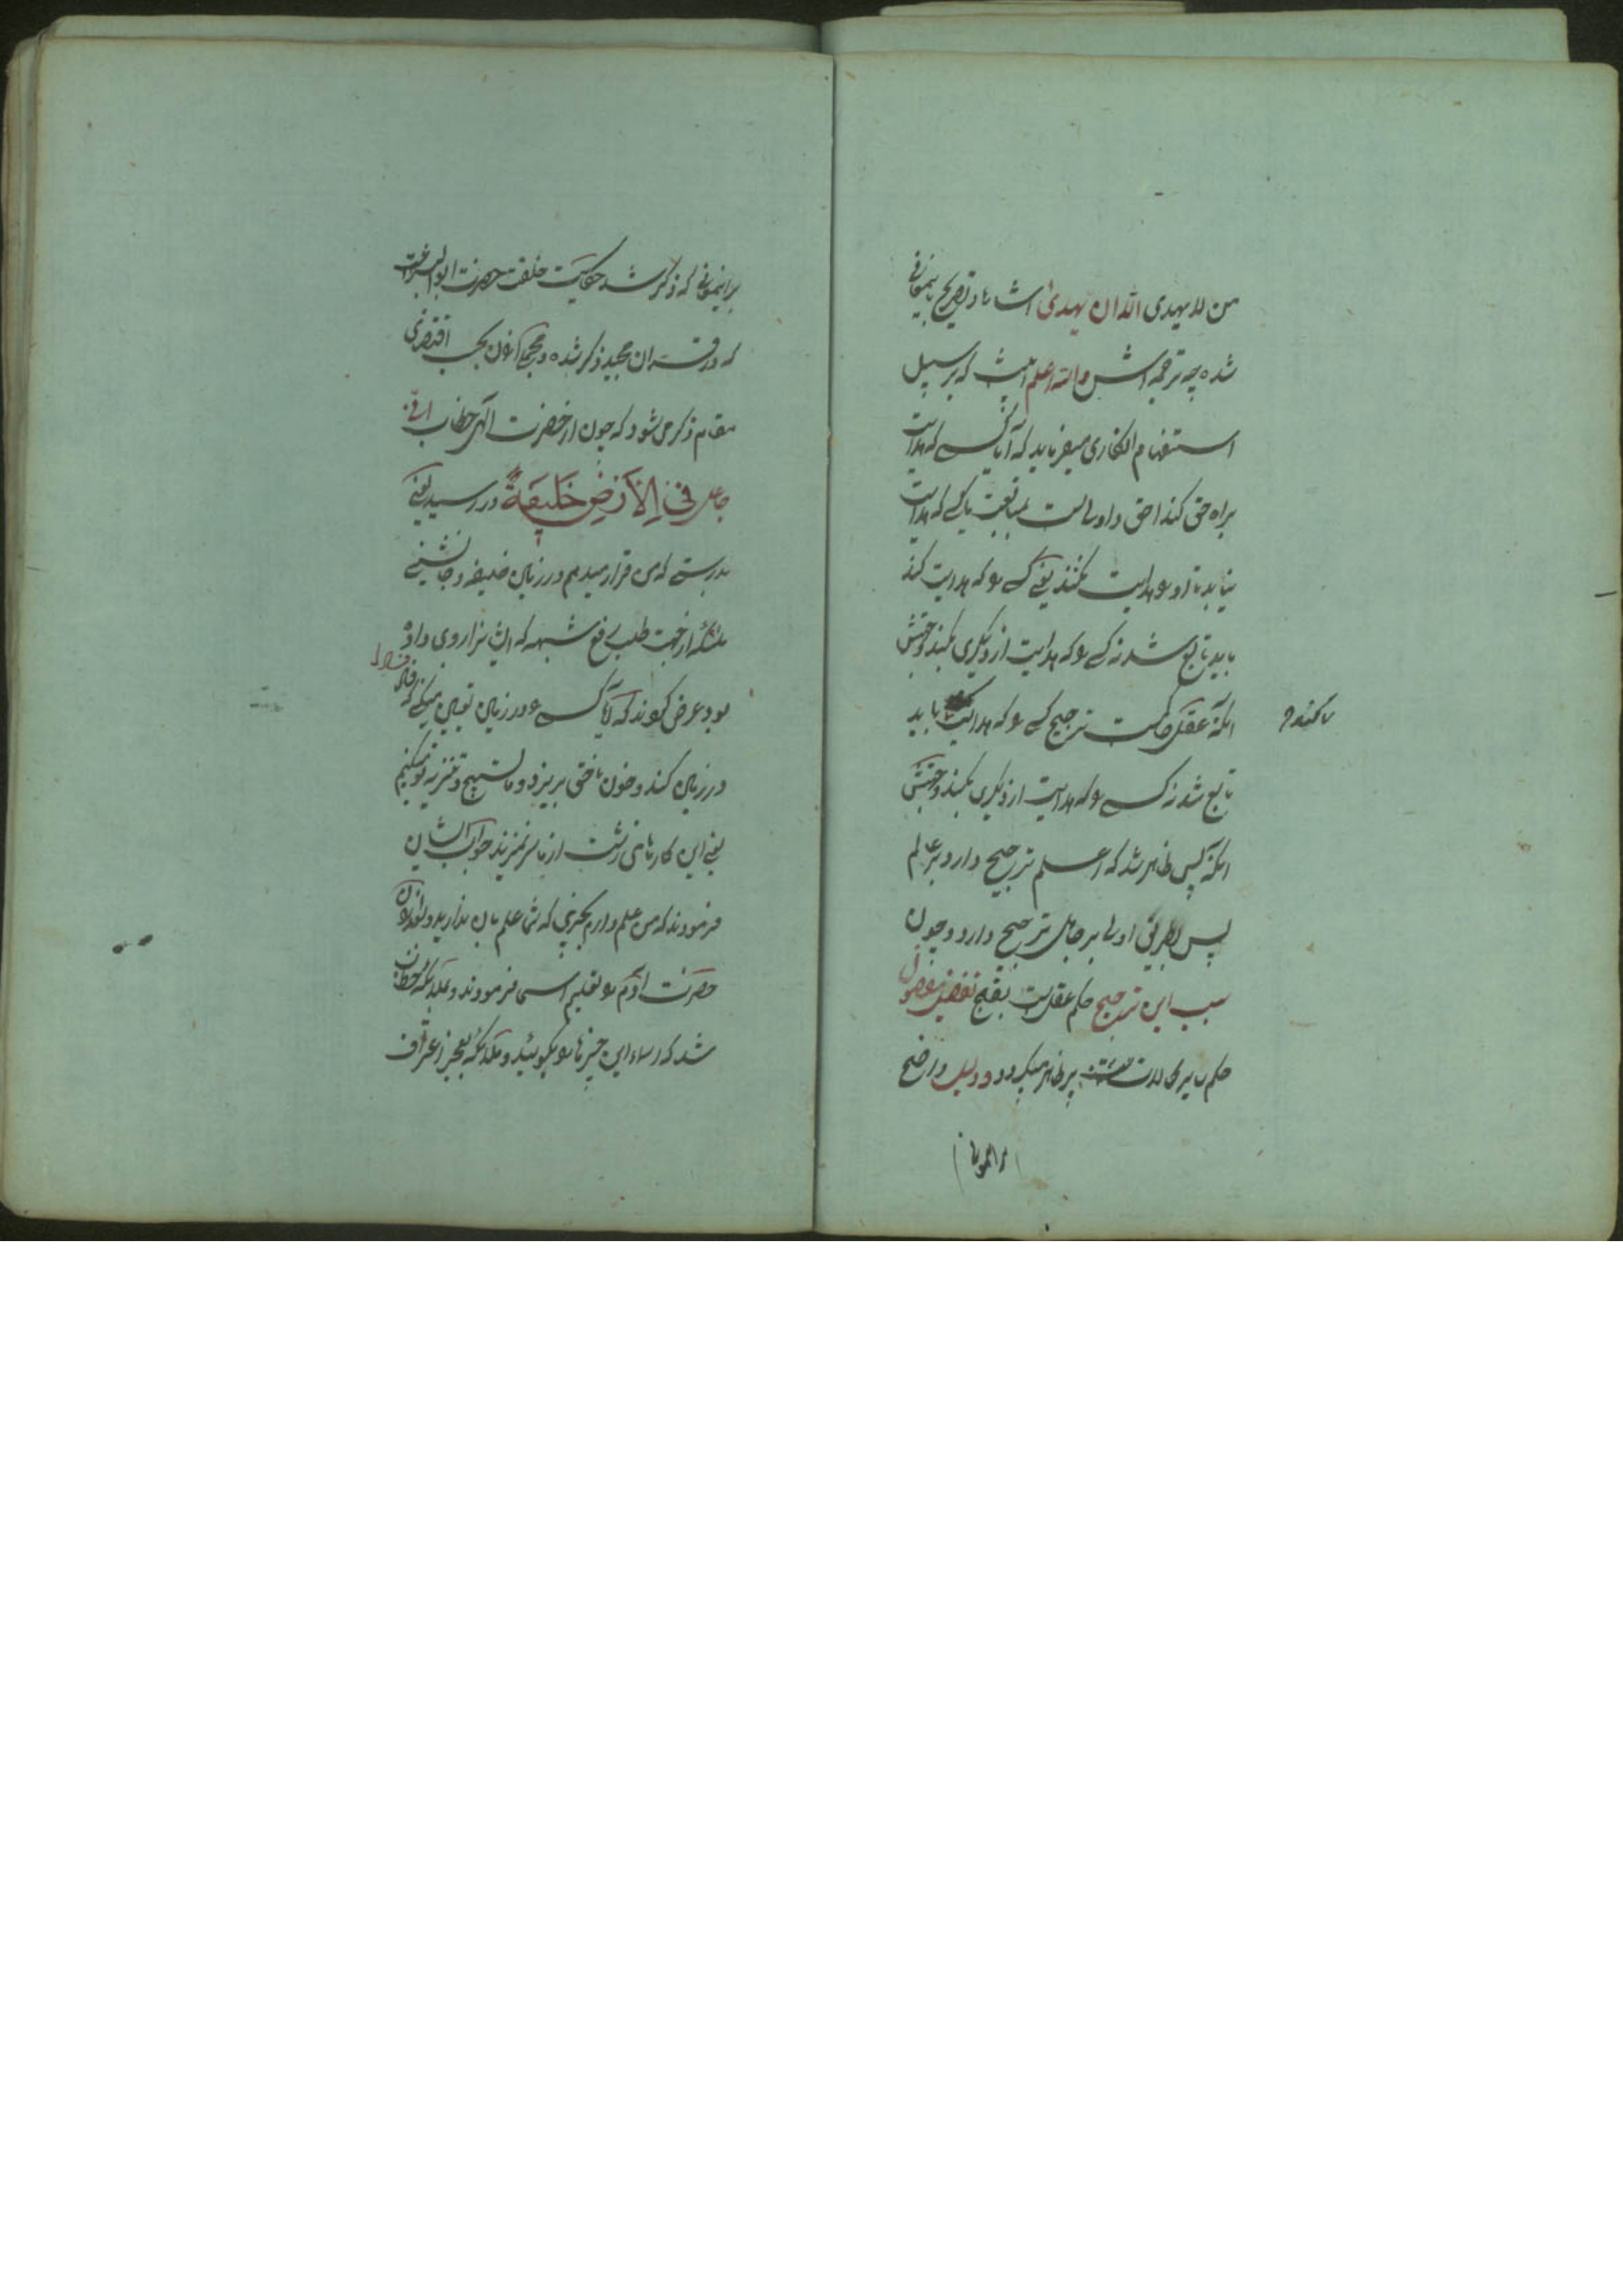 من لا یهدی الا ان یهدی اشاره و تصریح باینمعنی
شده چه ترجمه اش والله اعلم اینست که بر سبیل
استفهام انکاری میفرماید که آیا کسی که هدایت
براه حق کند احق و اولی است بمتابعت یا کسی که هدایت
نیابد تا او را هدایت نکنند یعنی کسی را که هدایت کند
باید تابع شد نه کسی را که هدایت از دیگری بکند و جهتش
آنکه عقل حاکمست ترجیح کسی را که هدایت باید
تابع شد نه کسی را که هدایت از دیگری بکند و جهتش
آنکه پس ظاهر شد که اعلم ترجیح دارد بر عالم
پس بطریق اولی بر جاهل ترجیح دارد و چون
سبب این ترجیح حکم عقل است بقبح تفضیل مفضول
حکم سایر کمالات نیز ظاهر میگردد و دلیل واضح
براینمعانی که ذکر شد حکایت خلقت حضرت ابوالبشر است
که در قرآن مجید ذکر شده و مجملی از آن بحسب اقتضای
مقام ذکر می شود که چون از حضرت الهی خطاب انی
جاعل فی الارض خلیفة در رسید یعنی
بدرستی که من قرار میدهم در زمین خلیفه و جانشینی
ملئکه از جهت طلب رفع شبهه که ایشانرا روی داده
بود عرض کردند که آیا کسی را در زمین تعیین میکنی که فساد
در زمین کند و خون ناحق بریزد و ما تسبیح و تنزیه تو میکنیم
یعنی این کارهای زشت از ما سر نمیزند جواب ایشان
فرمودند که من علم دارم بچیزی که شما علم بآن ندارید و بعد از آن
حضرت آدم را تعلیم اسما فرمودند و بملائکه خطاب
شد که اسماء این چیزها را بگوئید و ملائکه بعجز اعتراف